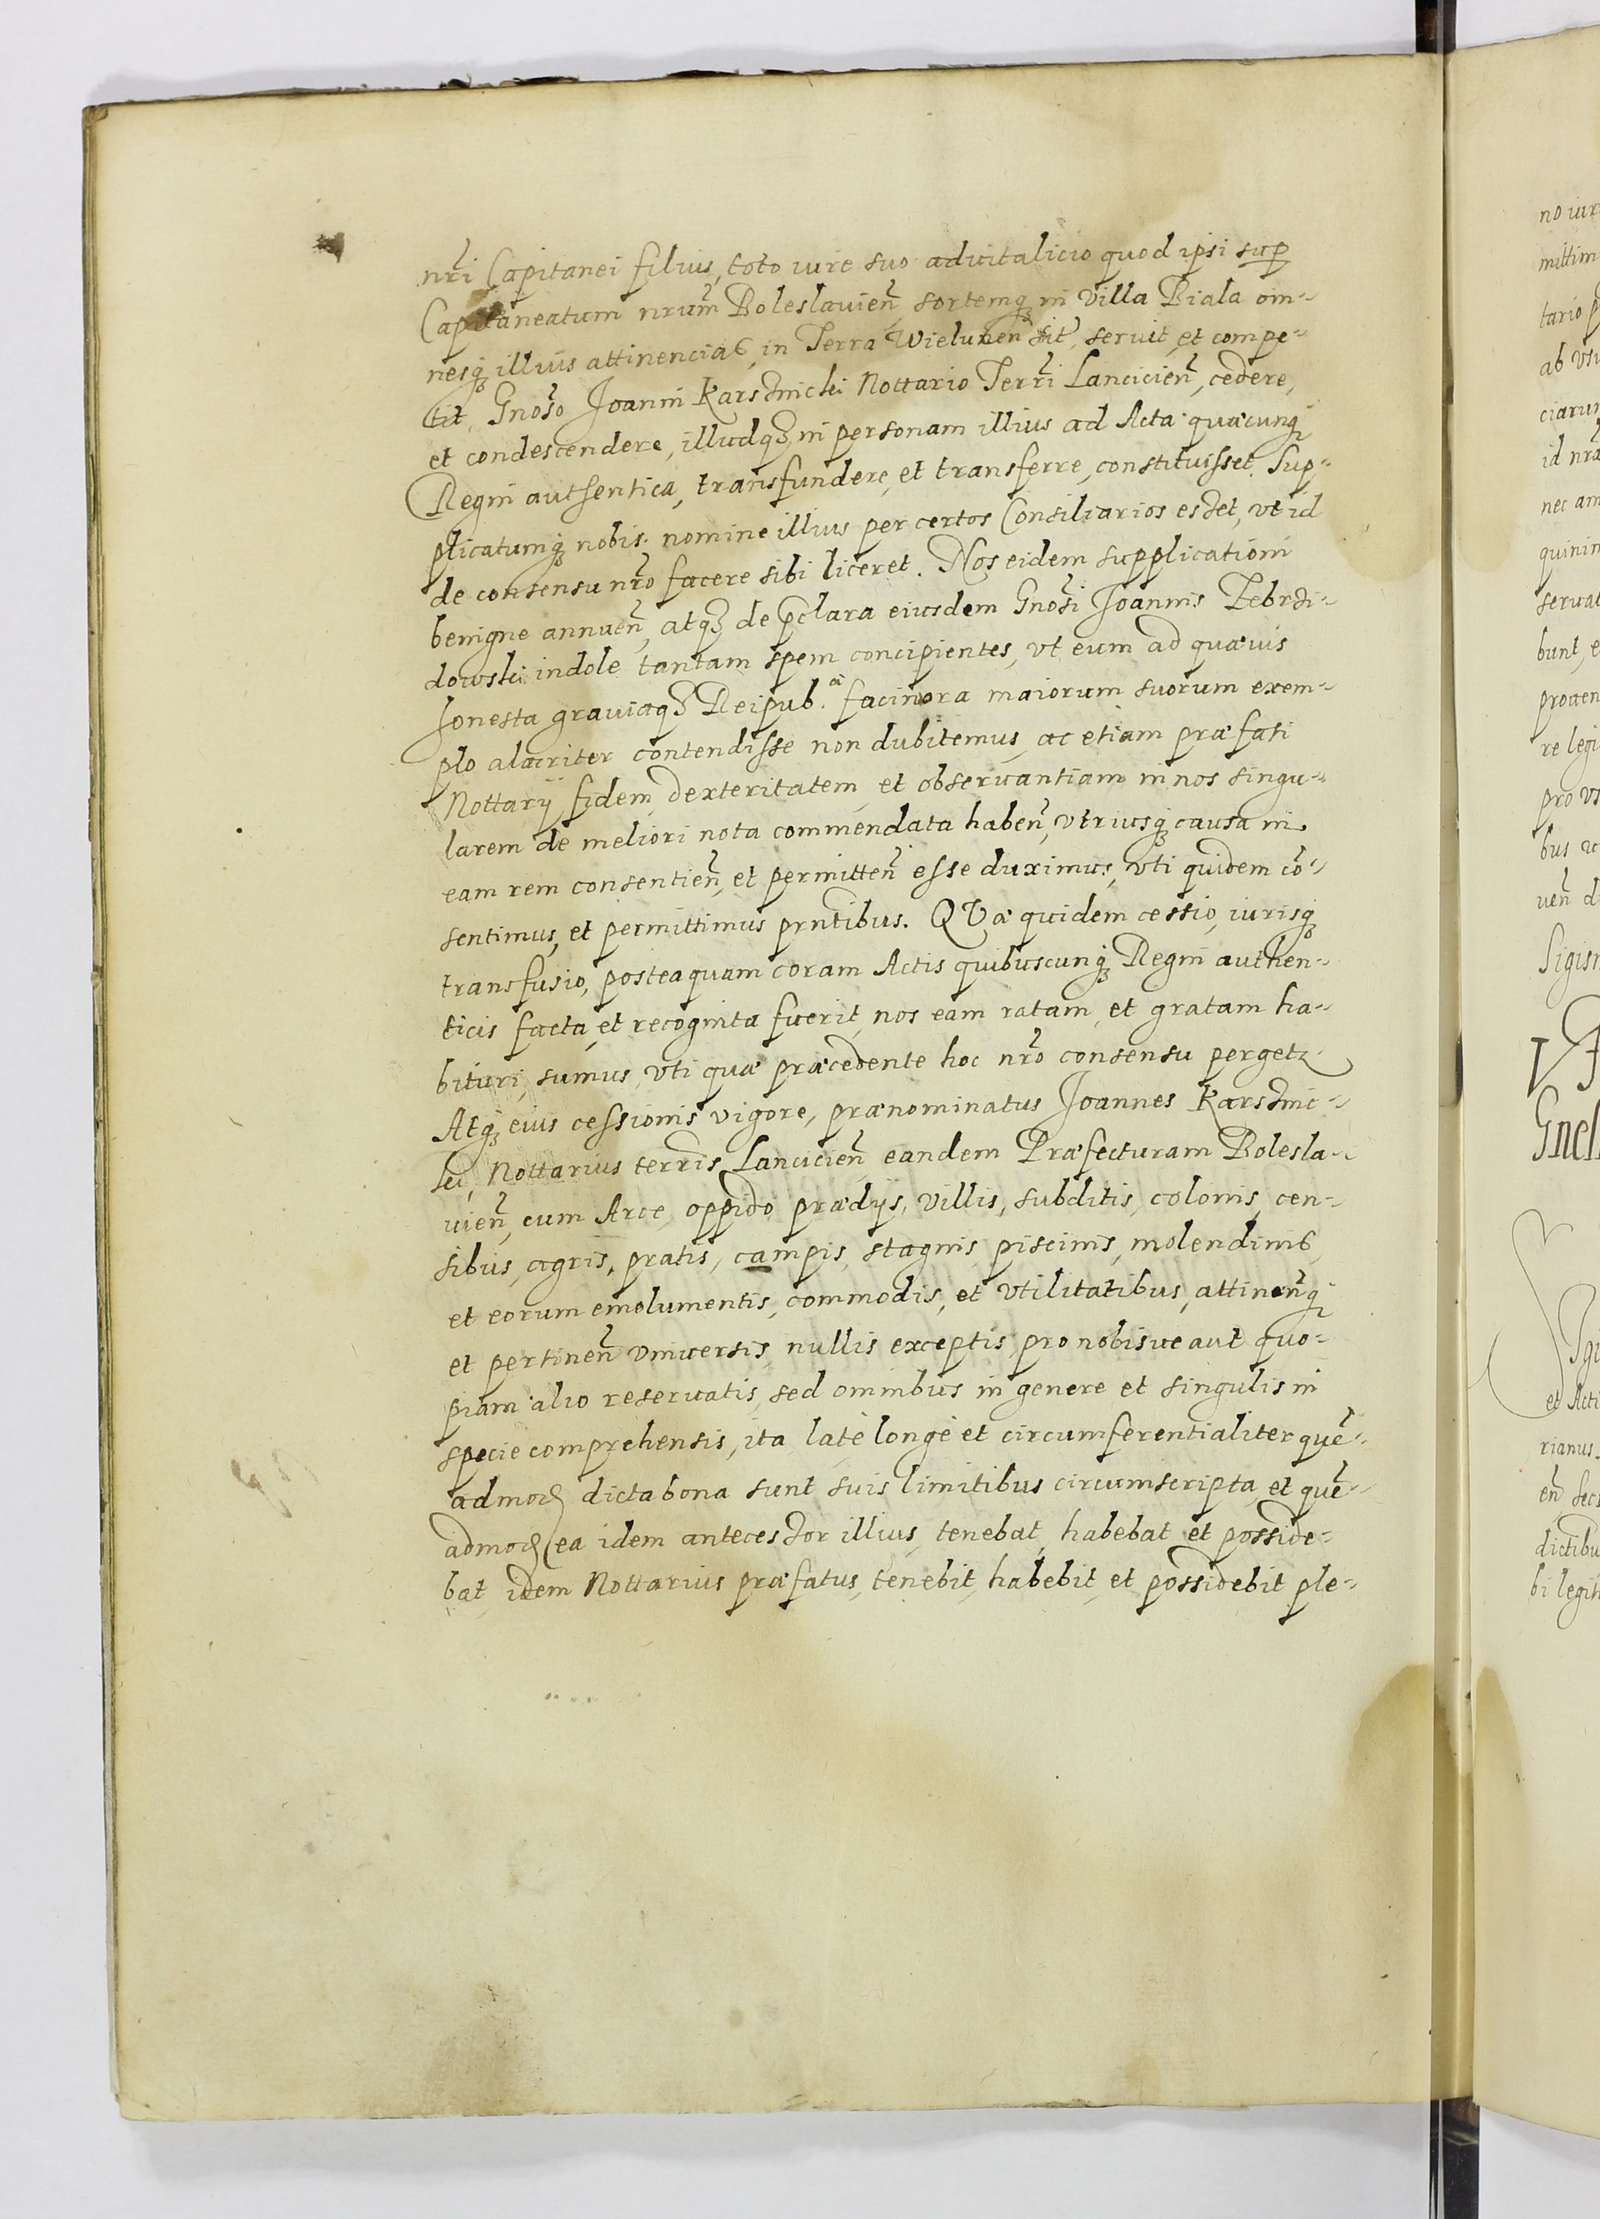 nr̃i Capitanei filius, toto iure suo aduitalicio quod ipsi sup
Capitaneatum nrũm Boleslauieñ, sortemq; in Villa Biala om-
nesq; illius attinencias, in Terra Wieluneñ sit, seruit, et compe-
tit, Gnoso Joanni Karsznicki Nottario Terrĩ Lancicieñ, cedere,
et condescendere, illudq; in personam illius ad Acta quæcunq;
Regni authentica, transfundere, et transferre, constituisset, Sup-
plicatumq; nobis nomine illius per certos Consiliarios esset, vt id
de consensu nr̃o facere sibi liceret. Nos eidem supplicationi
benigne annueñ, atq; de p̃clara eiusdem Gnosi Joannis Zebrzi-
dowski indole tantam spem concipientes, vt eum ad quæuis
honesta grauiaq; Reipub.ᵃ facinora maiorum suorum exem-
plo alacriter contendisse non dubitemus, ac etiam præfati
Nottarij fidem, dexteritatem, et obseruantiam in nos singu-
larem de meliori nota commendata habeñ, vtriusq; causa in
eam rem consentieñ, et permitteñ esse duximus, vti quidem cõ-
sentimus, et permittimus prñtibus. QVæ quidem cessio, iurisq;
transfusio, posteaquam coram Actis quibuscunq; Regni authen-
ticis facta, et recognita fuerit, nos eam ratam, et gratam ha-
bituri, sumus, vti quæ præcedente hoc nr̃o consensu pergetz
Atq; eius cessionis vigore, prænominatus Joannes Karsznic-
ki, Nottarius terrĩs Lancicieñ eandem Præfecturam Bolesla-
uieñ, cum Arce, oppido, prædijs, villis, subditis, colonis, cen-
sibus, agris, pratis, campis, stagnis, piscinis, molendinis,
et eorum emolumentis, commodis, et vtilitatibus, attineñq;
et pertineñ vniuersis, nullis exceptis, pro nobisue aut quo-
piam alio reseruatis, sed omnibus in genere et singulis in
specie comprehensis, ita latè longè et circumferentialiter quẽ-
admod dicta bona sunt suis limitibus circumscripta, et quẽ-
admod ea idem antecessor illius, tenebat, habebat et posside-
bat, idem Nottarius præfatus, tenebit, habebit, et possidebit ple-